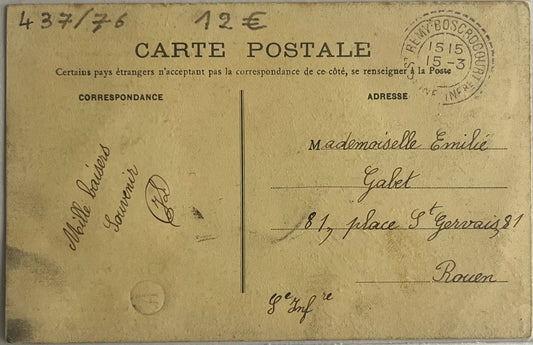 437/76 12 €
CARTE POSTALE
Certains pays étrangers n'acceptant pas la correspondance de ce côté, se renseigner à la Poste
CORRESPONDANCE
ADRESSE
St REMY-BOSCROCOURT
1515
15-3
SEINE INFRE
Mille baisers
Souvenir
Mademoiselle Emilie
Gabet
81, place St Gervais, 81
Rouen
Se Infre